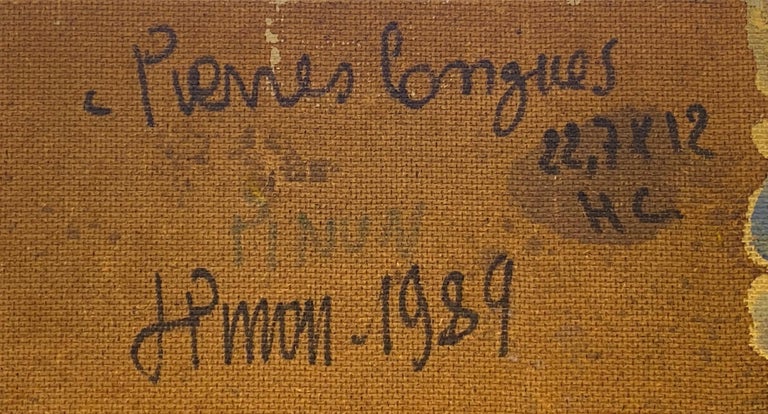 Pierres longues
22,7 x 12
HC
PINON
JPinon - 1989